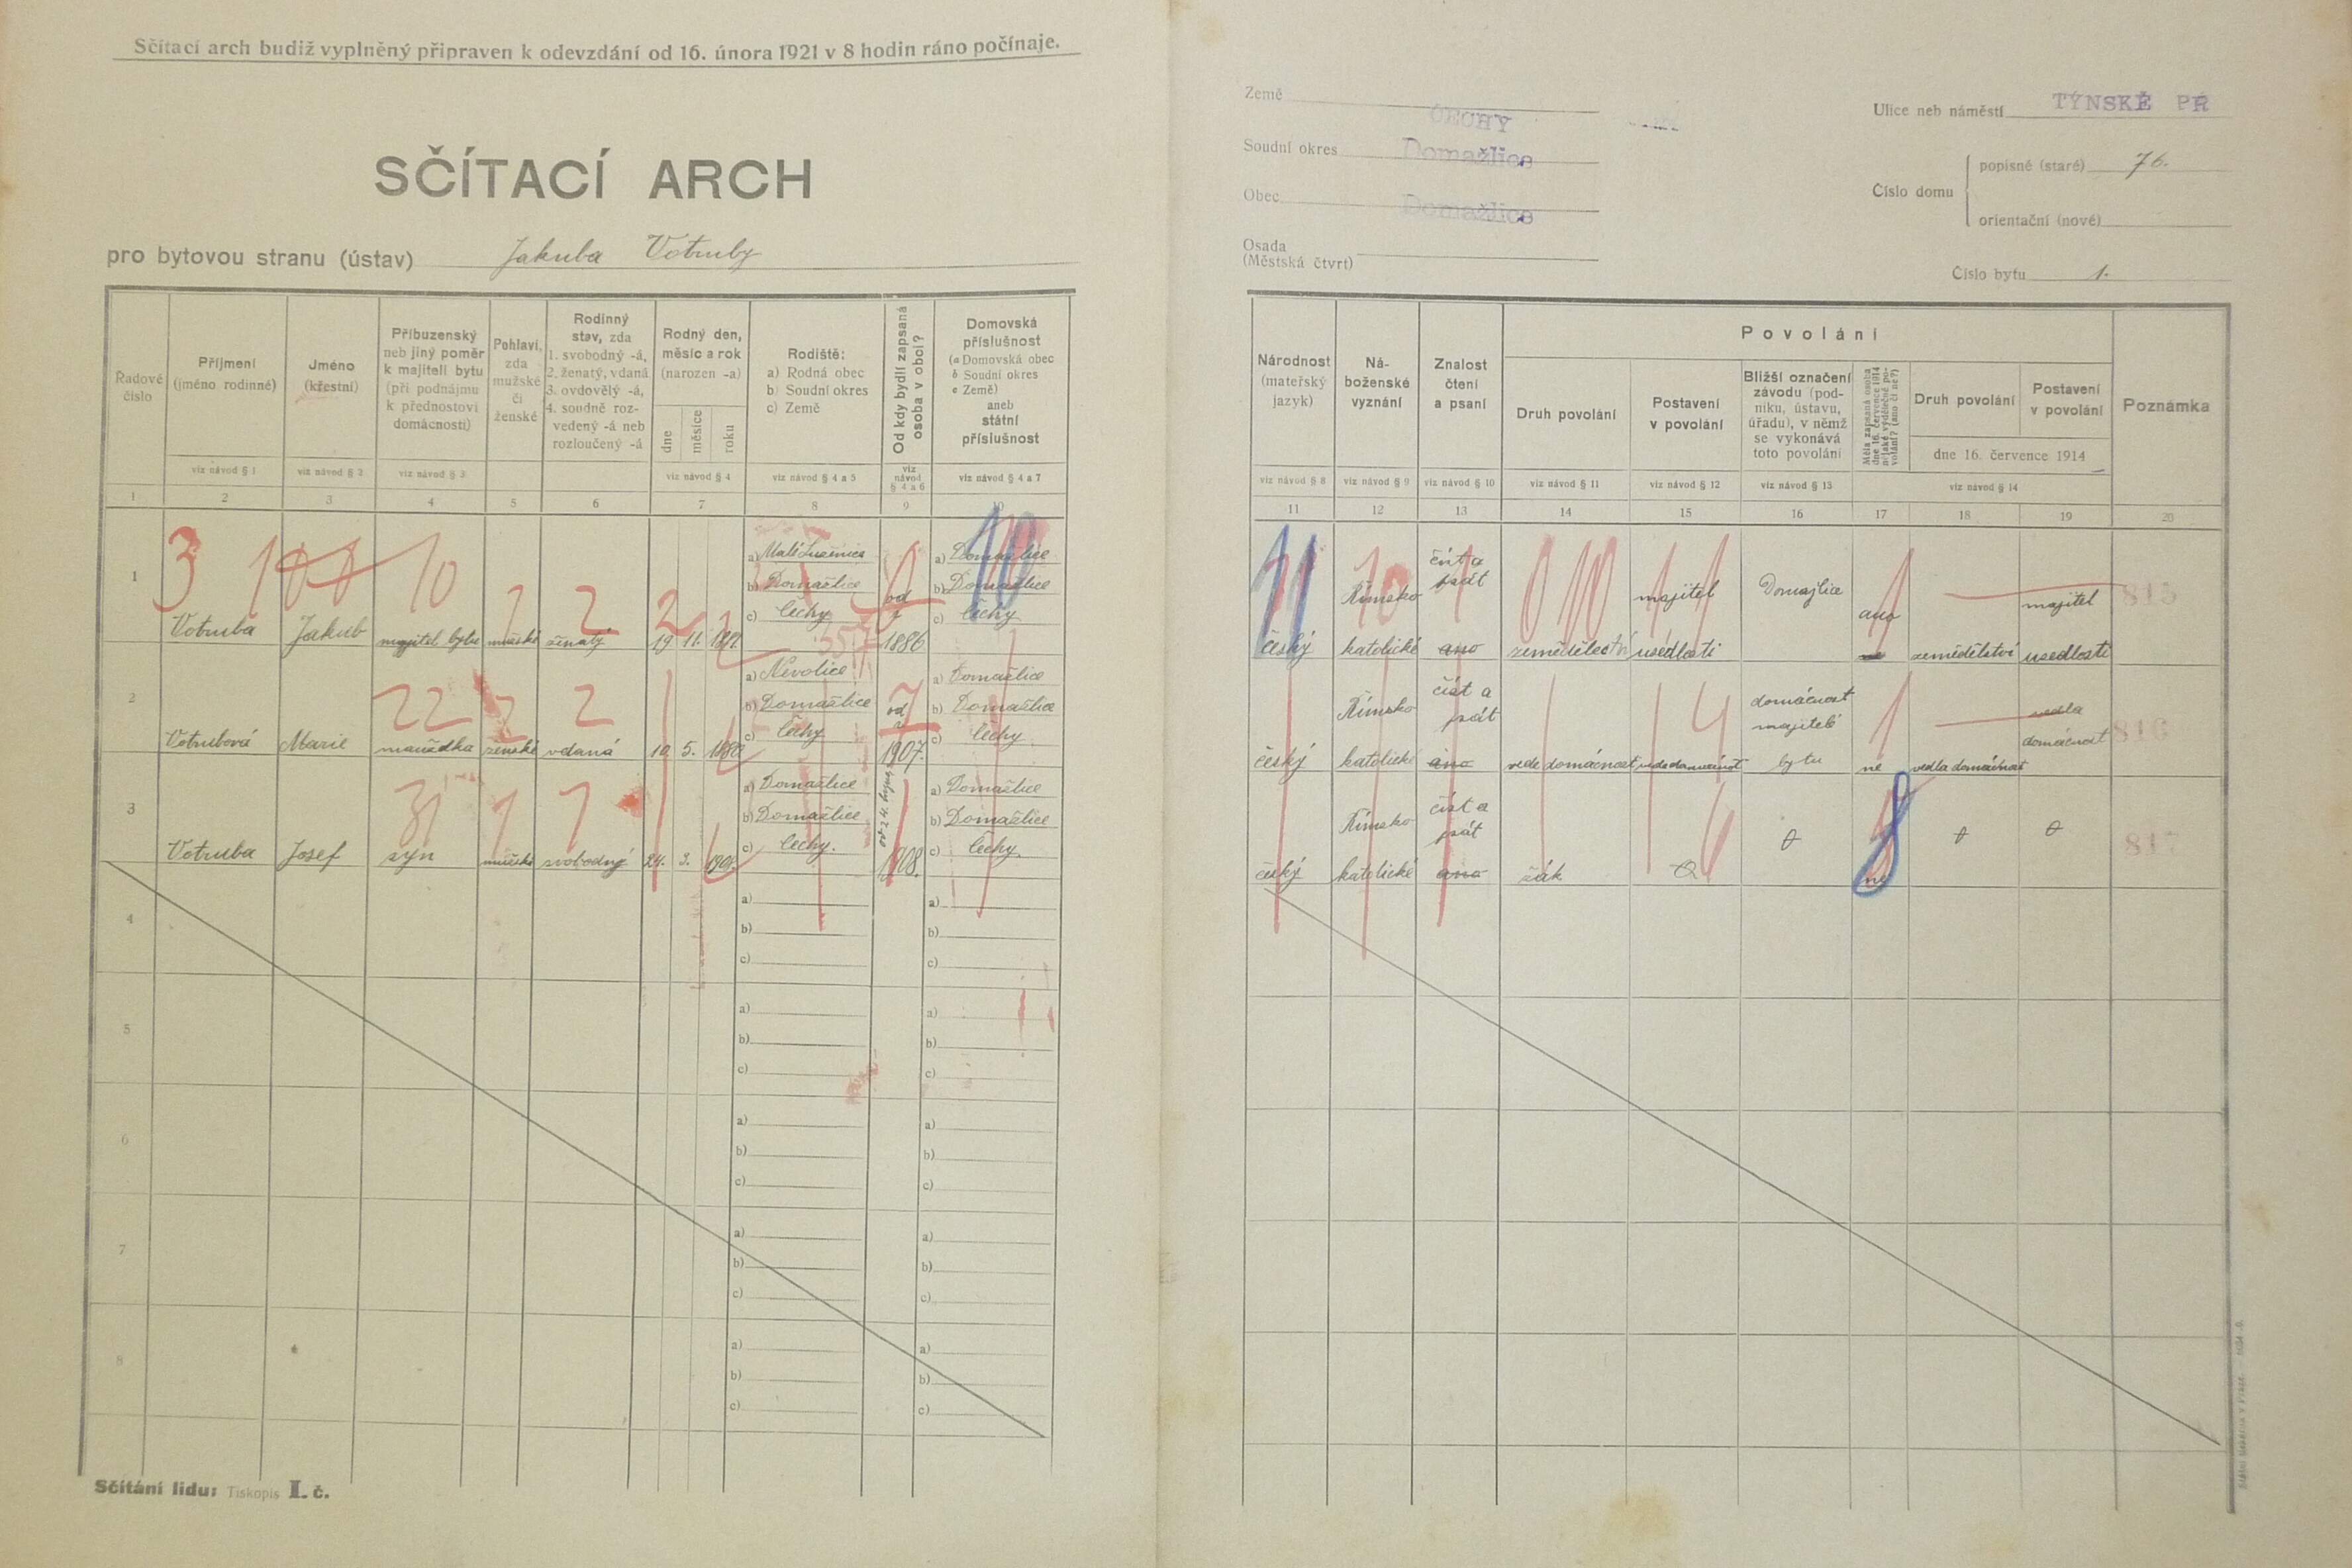 Sčítací arch budiž vyplněný připraven k odevzdání od 16. února 1921 v 8 hodin ráno počínaje.
SČÍTACÍ ARCH
pro bytovou stranu (ústav) Jakuba Votruby
Řadové číslo
Příjmení
(jméno rodinné)
viz návod § 1
Jméno
(křestní)
viz návod § 2
Příbuzenský
neb jiný poměr
k majiteli bytu
(při podnájmu
k přednostovi
domácnosti)
viz návod § 3
Pohlaví,
zda
mužské
či
ženské
Rodinný
stav, zda
1. svobodný -á,
2. ženatý, vdaná
3. ovdovělý -á,
4. soudně roz-
vedený -á neb
rozloučený -á
Rodný den,
měsíc a rok
(narozen -a)
dne
měsíce
roku
viz návod § 4
Rodiště:
a) Rodná obec
b) Soudní okres
c) Země
viz návod § 4 a 5
Od kdy bydlí zapsaná
osoba v obci?
viz
návod
§ 4 a 6
Domovská
příslušnost
(a Domovská obec
b Soudní okres
c Země)
aneb
státní
příslušnost
viz návod § 4 a 7
1 2 3 4 5 6 7 8 9 10
1
Votruba Jakub majitel bytu mužské ženatý 19 11.
a)
b) Domažlice
c) Čechy
od
1886.
a) Domažlice
b) Domažlice
c) Čechy
2
Votrubová Marie manželka ženské vdaná 10. 5.
a) Nevolice
b) Domažlice
c) Čechy
od
1907.
a) Domažlice
b) Domažlice
c) Čechy
3
Votruba Josef syn mužské svobodný 24. 3.
a) Domažlice
b) Domažlice
c) Čechy.
1908.
a) Domažlice
b) Domažlice
c) Čechy.
4
a) a)
b) b)
c) c)
5
a) a)
b) b)
c) c)
6
a) a)
b) b)
c) c)
7
a) a)
b) b)
c) c)
8
a) a)
b) b)
c) c)
Sčítání lidu: Tiskopis I. č.
Země ČECHY
Soudní okres Domažlice
Obec Domažlice
Osada
(Městská čtvrť)
Ulice neb náměstí TÝNSKÉ PŘ
Číslo domu
popisné (staré) 76.
orientační (nové)
Číslo bytu 1.
Národnost
(mateřský
jazyk)
viz návod § 8
Ná-
boženské
vyznání
viz návod § 9
Znalost
čtení
a psaní
viz návod § 10
Povolání
Druh povolání
viz návod § 11
Postavení
v povolání
viz návod § 12
Bližší označení
závodu (pod-
niku, ústavu,
úřadu), v němž
se vykonává
toto povolání
viz návod § 13
Měla zapsaná osoba
dne 16. července 1914
nějaké výdělečné po-
volání? (ano či ne?)
Druh povolání
Postavení
v povolání
dne 16. července 1914
viz návod § 14
Poznámka
11 12 13 14 15 16 17 18 19 20
český
Římsko
katolické
číst a
psát
ano
zemědělství
majitel
usedlosti
Domažlice
ano
ne
zemědělství
majitel
usedlosti
815
český
Římsko
katolické
číst a
psát
ano
vede domácnost
vede domácnost
domácnost
majitele
bytu
ne
vedla domácnost
vedla
domácnost
816
český
Římsko
katolické
číst a
psát
ano
žák
ne
817